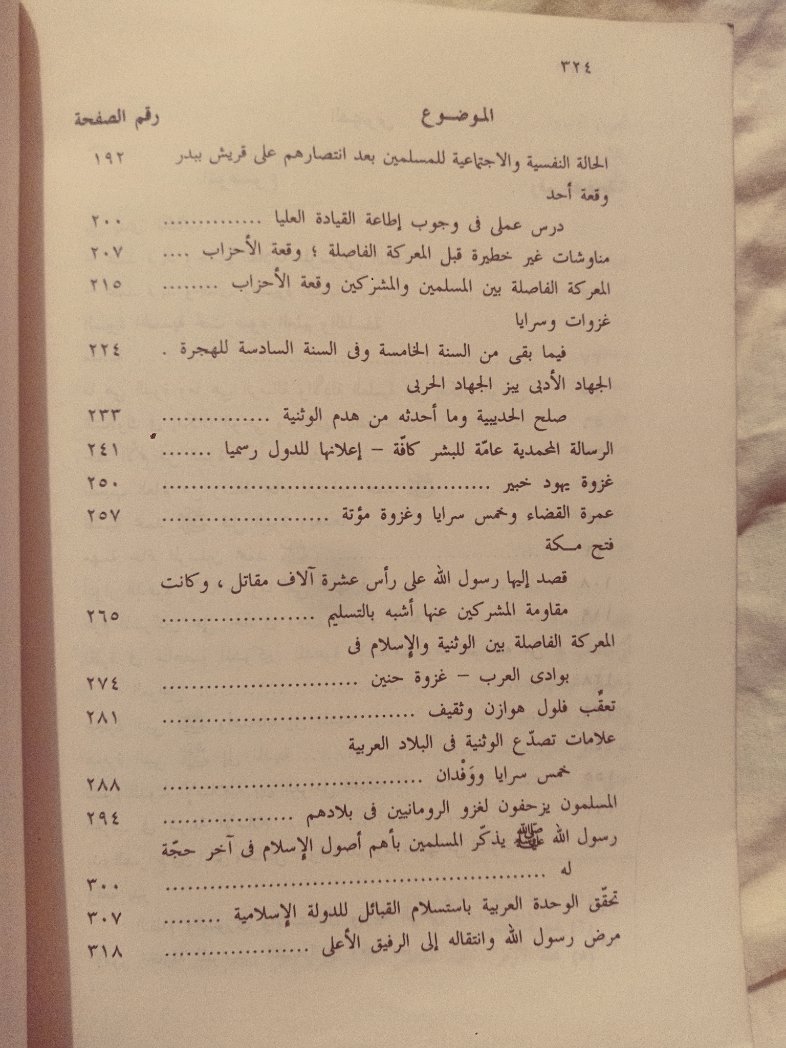 ٣٢٤
الموضـوع رقم الصفحة
الحالة النفسية والاجتماعية للمسلمين بعد انتصارهم على قريش ببدر ١٩٢
وقعة أحد
درس عملى فى وجوب إطاعة القيادة العليا .............. ٢٠٠
مناوشات غير خطيرة قبل المعركة الفاصلة ؛ وقعة الأحزاب .... ٢٠٧
المعركة الفاصلة بين المسلمين والمشركين وقعة الأحزاب ........ ٢١٥
غزوات وسرايا
فيما بقى من السنة الخامسة وفى السنة السادسة للهجرة . ٢٢٤
الجهاد الأدبى يبز الجهاد الحربى
صلح الحديبية وما أحدثه من هدم الوثنية ............... ٢٣٣
الرسالة المحمدية عامّة للبشر كافّة – إعلانها للدول رسميا ....... ٢٤١
غزوة يهود خبير ............................................... ٢٥٠
عمرة القضاء وخمس سرايا وغزوة مؤتة ........................ ٢٥٧
فتح مـكة
قصد إليها رسول الله على رأس عشرة آلاف مقاتل ، وكانت
مقاومة المشركين عنها أشبه بالتسليم ...................... ٢٦٥
المعركة الفاصلة بين الوثنية والإسلام فى
بوادى العرب – غزوة حنين ............................ ٢٧٤
تعقّب فلول هوازن وثقيف .................................... ٢٨١
علامات تصدّع الوثنية فى البلاد العربية
خمس سرايا ووَفْدان ..................................... ٢٨٨
المسلمون يزحفون لغزو الرومانيين فى بلادهم ................... ٢٩٤
رسول الله ﷺ يذكّر المسلمين بأهم أصول الإسلام فى آخر حجّة
له ....................................................... ٣٠٠
تحقّق الوحدة العربية باستسلام القبائل للدولة الإسلامية ........ ٣٠٧
مرض رسول الله وانتقاله إلى الرفيق الأعلى ..................... ٣١٨